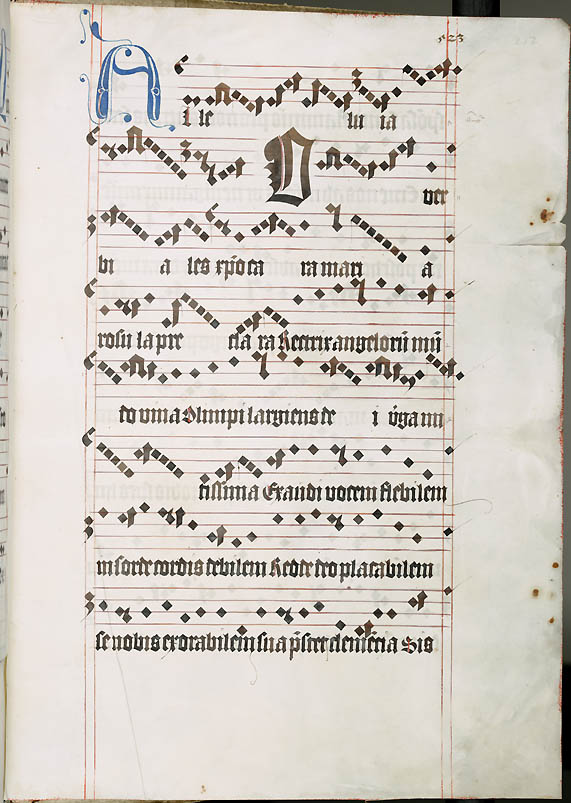 523
A l le lu ia
O ver
bi a les xp̄o ca ra mari a
rosu la pre cla ra Rectrix angeloru̅ mu̅
do vina Olimpi largiens de i v̄ga mi
tissima Exaudi vocem flebilem
in sorde cordis debilem Redde deo placabilem
se nobis exorabilem sua clem̅cia Sis